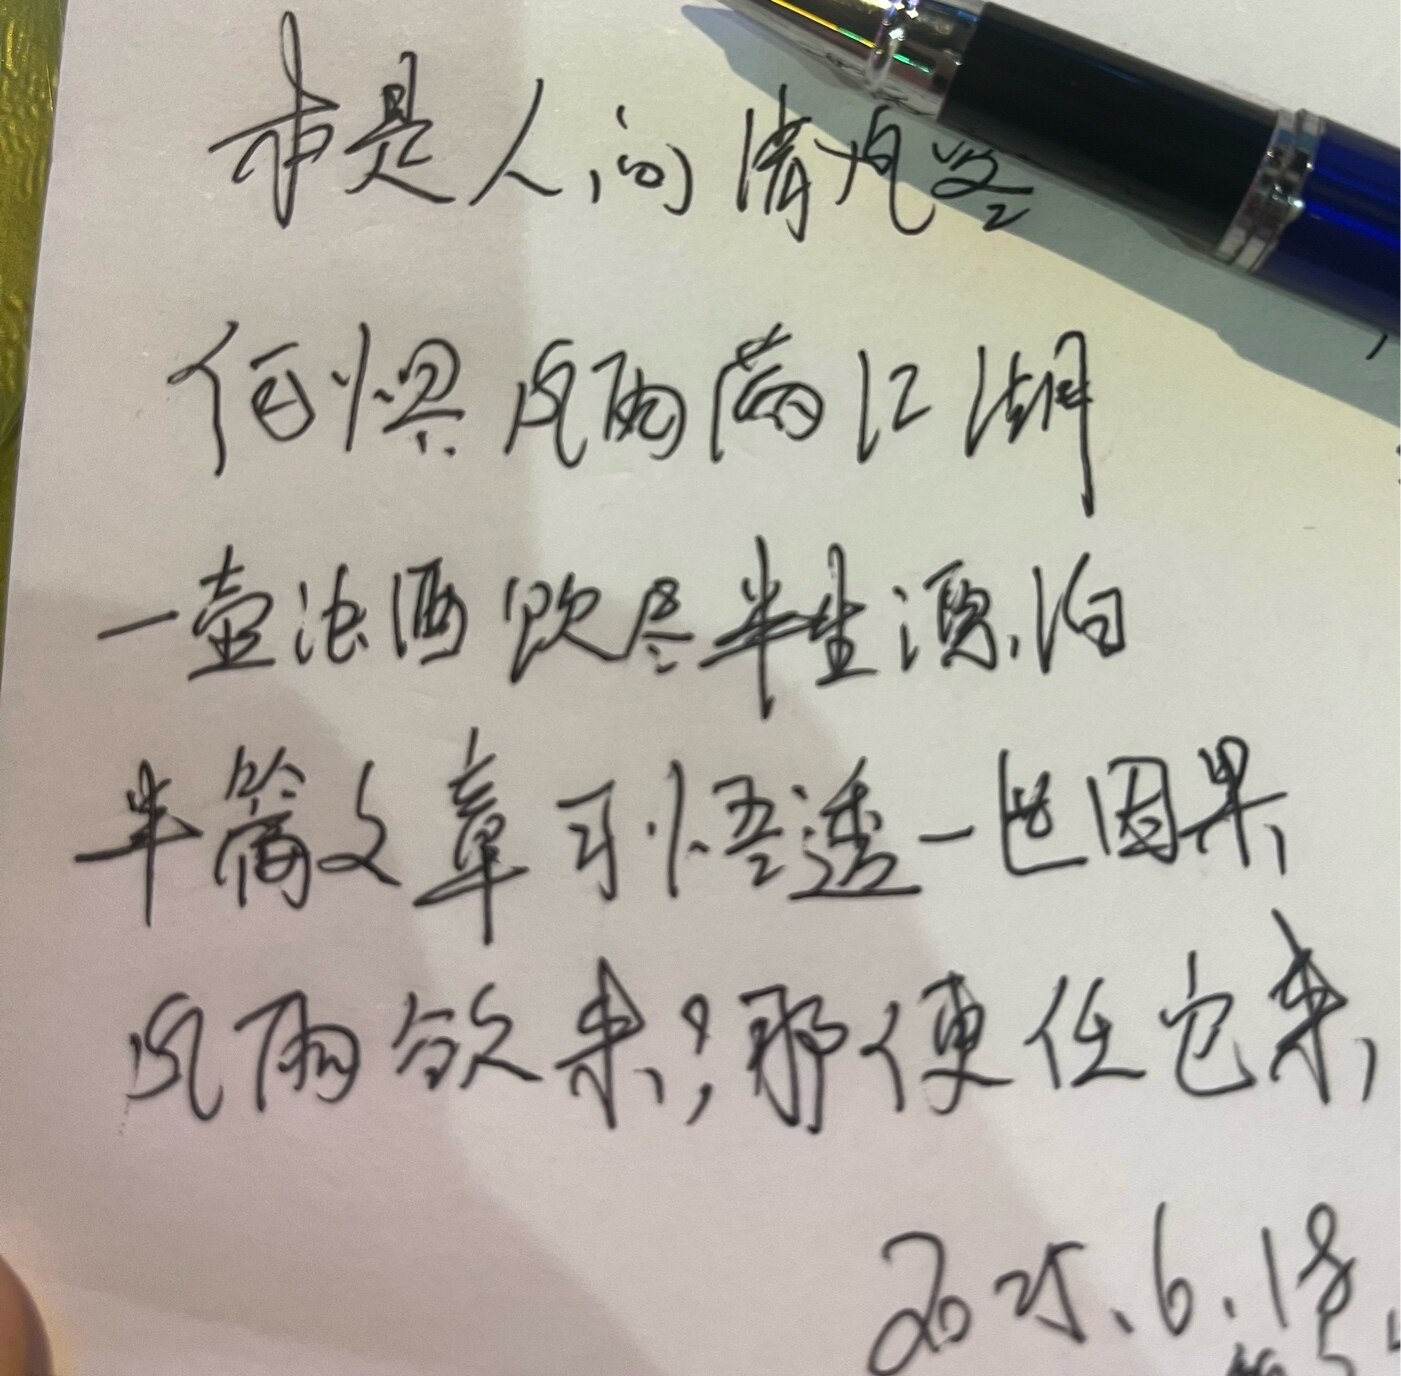 本是人间清风客
何惧风雨满江湖
一壶浊酒饮尽半生漂泊
半篇文章可悟透一世因果
风雨欲来,那便任它来,
2025.6.18.